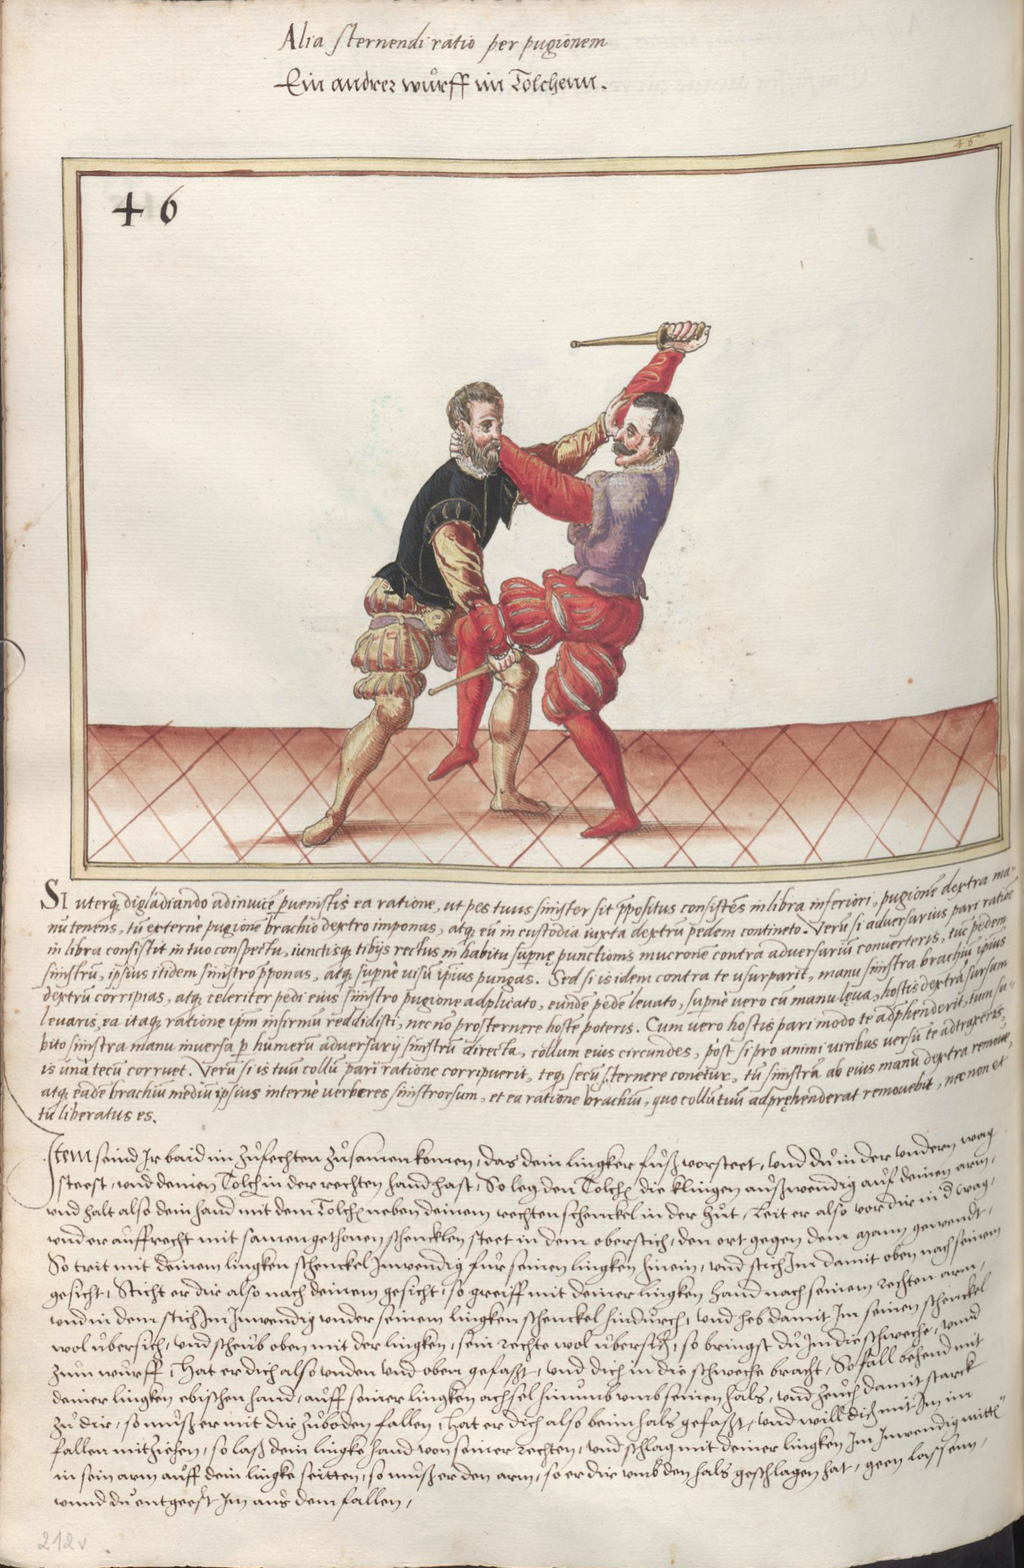 Alia sternendi ratio per pugionem
Ein andrer wůrff im Tolchenn.
46
46
SI uterq; digladiando adinuicē pvenistis ea ratione, ut pes tuus sinister sit ppositus consistēs in libra inferiori, pugionē dextra ma-
nu tenens, tū externè pugionē brachio dextro imponas, atq; eū in custodia iuxta dextrū pedem contineto. Verū si adversarius pari ratione
in libra consistit in tuo conspectu, iunctisq; tibijs rectus in habitu supne punctionis mucronē contra adversariū converteris, tuc pedem
sinistrū, ipsius itidem sinistro pponas, atq; supne visū ipius pungas. Sed si is idem contra te usurparit, manu sinistra brachiū ipius
dextrū corripias, atq; celeriter pedi eius sinistro pugione adplicato, eundē pedē levato, supne vero cū manu leva, hostis dextrā sursum
levaris, ea itaq; ratione ipm infirmū reddidisti, necnō prosternere hostē poteris. Cum vero hostis pari modo te adphenderit, tum su-
bito sinistra manu inversa p humerū adversarij sinistrū directa, collum eius circundes, post si pro animi viribus versū te adtraxeris,
is unà tecū corruet. Verū si is tuū collū pari ratione corripuerit, teq; secū sternere conetur, tū sinistrā ab eius manu dextra remove,
atq; eadē brachiū mediū ipsius internè verberes sinistrorsum, et ea ratione brachiū, quo collū tuū adprehenderat removebit, nec non et
tu liberatus es.
Item seind Ir baid im zůfechten zůsamen komen, das dein lingker fůß vorsteet, und dů in der undern wag
steest, und deinen Tolch in der rechten hand hast, So leg den Tolch die klingen außwendig auf deinen arm,
und halt also dein hand mit dem Tolch neben deinem rechten schenckel in der hůt, Leit er also vor dir in d wag,
und er auffrecht mit samen gethonen schencklen steet in dem oberstich, den ort gegen dem mann gewendt,
So trit mit deinem lingken schenckel Inwendig für seinen lingken hinein, und stich Im damit oben nach seinem
gesicht, Sticht er dir also nach deinem gesicht, so greiff mit deiner lingken hand nach seinem rechten arm,
und in dem stich Im Inwendig under seinem lingken schenckel hindurch, und heb damit Im seinen schenckel
wol übersich, und scheub oben mit der lingken, sein rechte wol übersich, so bringst dů In in die schweche, und
zum wurff, Hat er dich also unden und oben gefasst, und dich in die schweche bracht, So fall behend mit
deiner lingken ebischen hand, auff seiner lingken achsel hinumb umb seinen hals, und zeuch damit starck
zů dir, so můß er mit dir zůboden fallen, Hat er dich also beim hals gefaßt, und will dich mit Im im
fallen mitziehen, so laß dein lingke hand von seiner rechten, und schlag mit deiner lingken Im Inwendig mitten
in sein arm auff dein lingke seitten, so můß er den arm, so er dir umb den hals geschlagen hat, geen lassenn,
unnd dů entgeest Im aus dem fallen,
212v